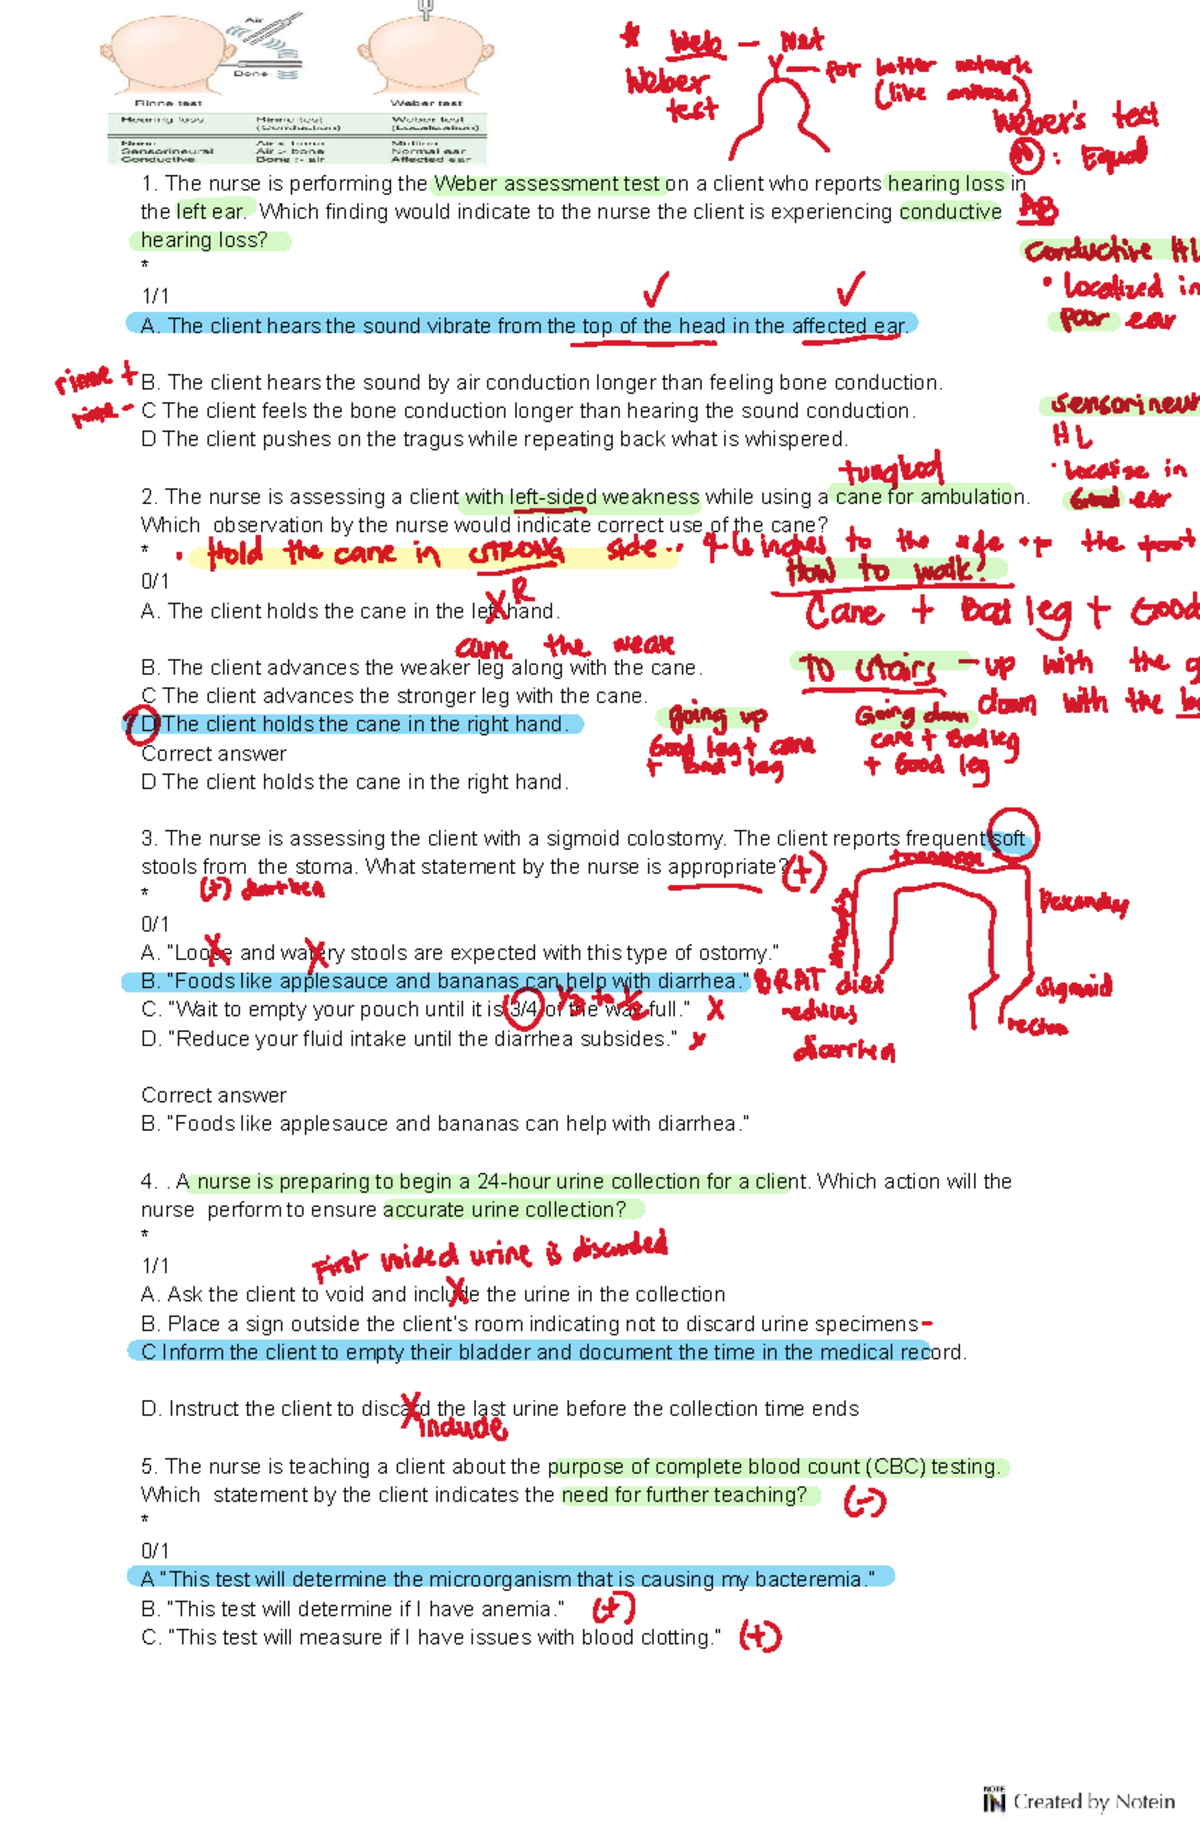 Air
Bone
Rinne test
Weber test
Hearing loss
Rinne test
(Conduction)
Weber test
(Localization)
None
Air > bone
Midline
Sensorineural
Air > bone
Normal ear
Conductive
Bone > air
Affected ear
* Web – Net
Weber test
for better network
(like antenna)
Weber's test
N : Equal
1. The nurse is performing the Weber assessment test on a client who reports hearing loss in
the left ear. Which finding would indicate to the nurse the client is experiencing conductive
AB
hearing loss?
*
Conductive HL
• localized in
poor ear
1/1
A. The client hears the sound vibrate from the top of the head in the affected ear.
rinne +
B. The client hears the sound by air conduction longer than feeling bone conduction.
rinne -
C The client feels the bone conduction longer than hearing the sound conduction.
D The client pushes on the tragus while repeating back what is whispered.
Sensorineur
HL
• localize in
Good ear
tungkod
2. The nurse is assessing a client with left-sided weakness while using a cane for ambulation.
Which observation by the nurse would indicate correct use of the cane?
*
• Hold the cane in strong side.. 4-6 inches to the side of the foot
How to walk?
Cane + Bad leg + Good
0/1
A. The client holds the cane in the left hand.
R
cane the weak
B. The client advances the weaker leg along with the cane.
C The client advances the stronger leg with the cane.
D The client holds the cane in the right hand.
To stairs – up with the g
down with the b
Going up
Good leg + cane
+ Bad leg
Going down
cane + Bad leg
+ Good leg
Correct answer
D The client holds the cane in the right hand.
3. The nurse is assessing the client with a sigmoid colostomy. The client reports frequent soft
stools from the stoma. What statement by the nurse is appropriate?
(+)
*
(+) diarrhea
transverse
Descending
ascending
sigmoid
rectum
0/1
A. "Loose and watery stools are expected with this type of ostomy."
B. "Foods like applesauce and bananas can help with diarrhea."
BRAT diet
-reduces
diarrhea
C. "Wait to empty your pouch until it is 3/4 of the way full."
1/3 to 1/2
D. "Reduce your fluid intake until the diarrhea subsides."
Correct answer
B. "Foods like applesauce and bananas can help with diarrhea."
4. . A nurse is preparing to begin a 24-hour urine collection for a client. Which action will the
nurse perform to ensure accurate urine collection?
*
First voided urine is discarded
1/1
A. Ask the client to void and include the urine in the collection
B. Place a sign outside the client's room indicating not to discard urine specimens
C Inform the client to empty their bladder and document the time in the medical record.
D. Instruct the client to discard the last urine before the collection time ends
include
5. The nurse is teaching a client about the purpose of complete blood count (CBC) testing.
Which statement by the client indicates the need for further teaching?
(-)
*
0/1
A "This test will determine the microorganism that is causing my bacteremia."
B. "This test will determine if I have anemia."
(+)
C. "This test will measure if I have issues with blood clotting."
(+)
NOTE IN Created by Notein